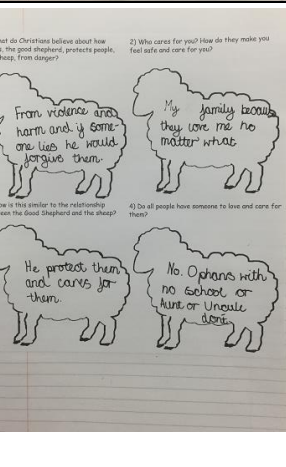 at do Christians believe about how
, the good shepherd, protects people,
heep, from danger?
From violence and
harm and if some-
one lies he would
forgive them.
2) Who cares for you? How do they make you
feel safe and care for you?
My family becaus
they love me no
matter what
ow is this similar to the relationship
een the Good Shepherd and the sheep?
He protect them
and cares for
them.
4) Do all people have someone to love and care for
them?
No. Ophans with
no school or
Aunt or Uncule
dont.